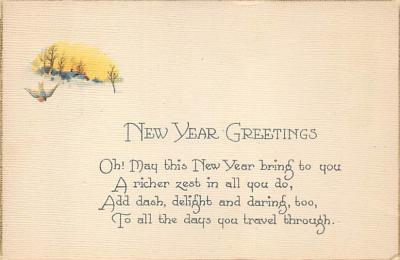 New Year Greetings
Oh! May this New Year bring to you
A richer zest in all you do,
Add dash, delight and daring, too,
To all the days you travel through.